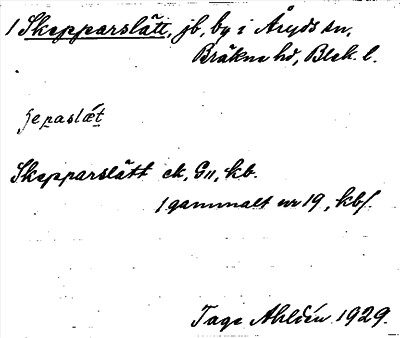 1 Skepparslätt, jb, by i Åryds sn,
Bräkne hd, Blek. l.
Skepparslätt ek, G11, kb.
1 gammalt nr 19, kbf.
Tage Ahldén 1929.